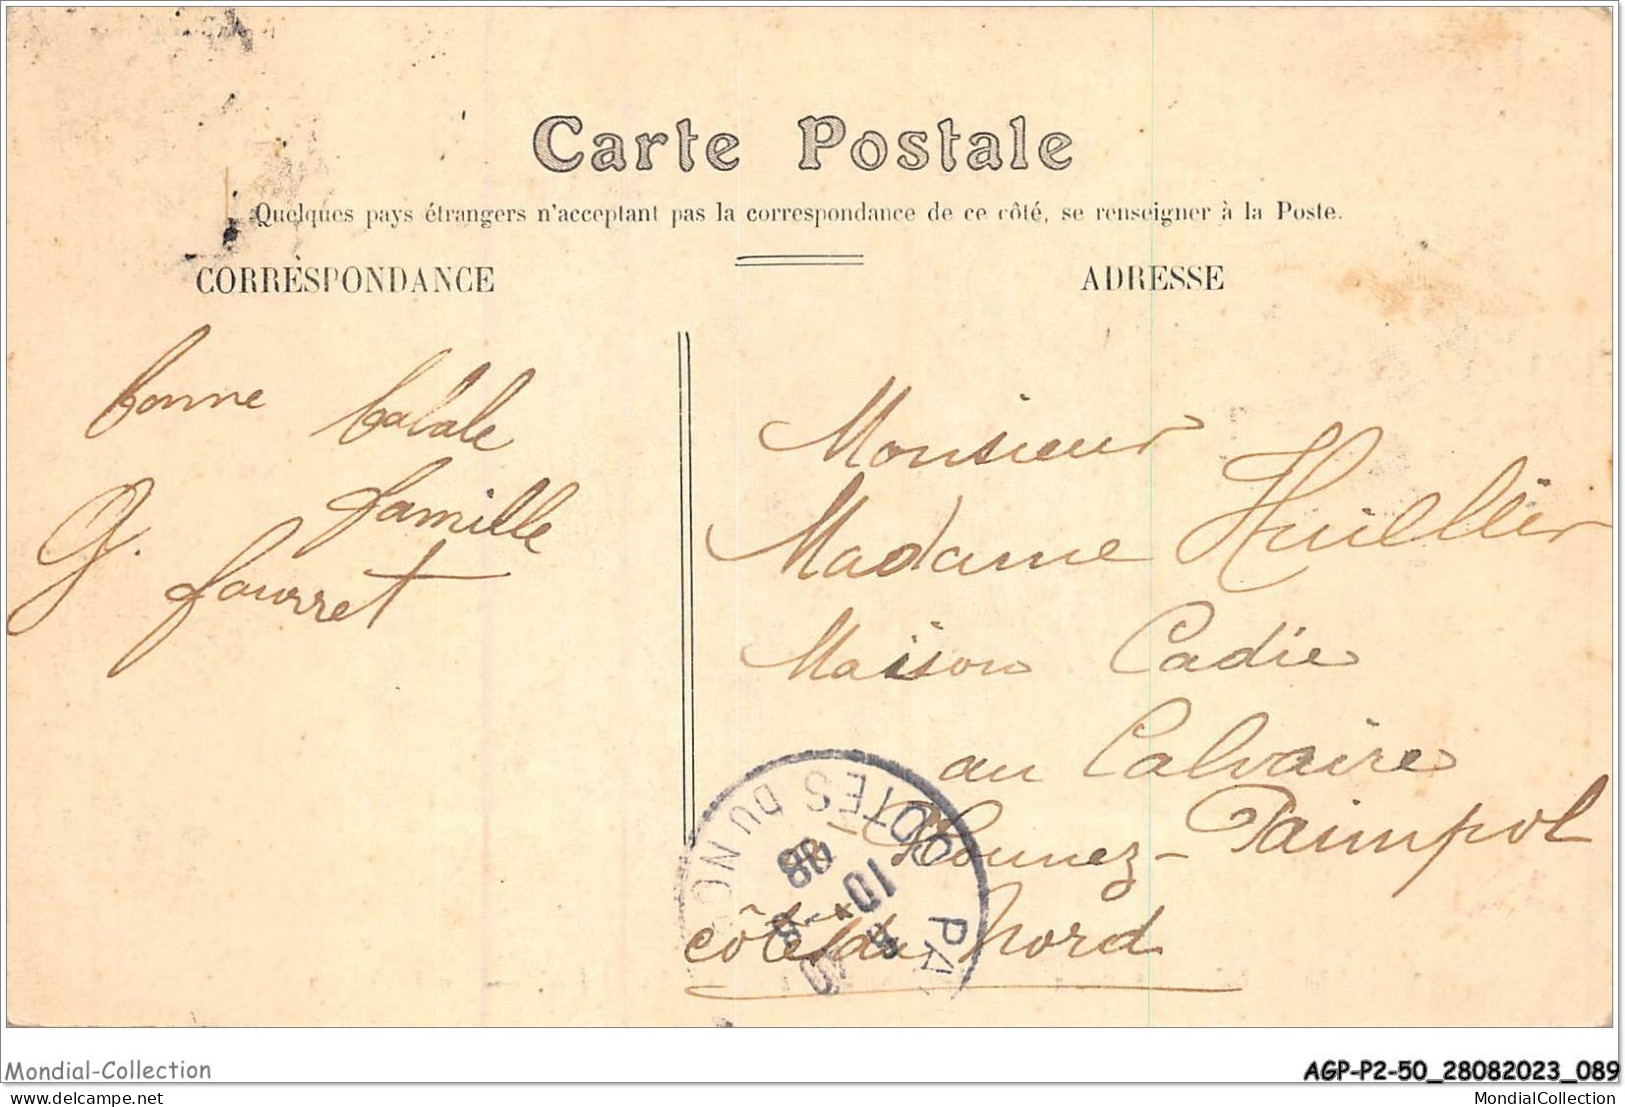 Carte Postale
Quelques pays étrangers n'acceptant pas la correspondance de ce côté, se renseigner à la Poste.
CORRESPONDANCE
ADRESSE
bonne balale
famille
G. fourret
Monsieur
Madame Huillier
Maïson Cadie
au Calvaire
Plounez - Paimpol
côte du Nord
PA
COTES DU NORD
Mondial-Collection
AGP-P2-50_28082023_089
delcampe.net
MondialCollection